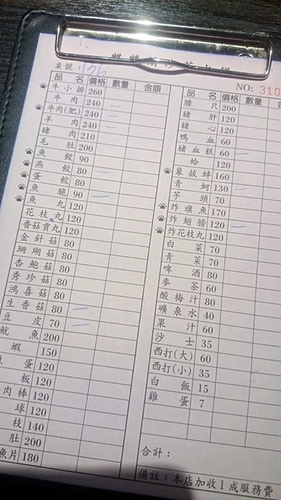 桌號：
NO: 310
品名 價格 數量 金額
牛小排 260
牛肉 240
牛肉(肥) 240
羊肉 240
豬肉 210
毛肚 200
魚餃 90
燕餃 80
蛋餃 80
魚脆 90
魚丸 120
花枝丸 120
香菇貢丸 120
金針菇 80
珊瑚菇 80
杏鮑菇 80
秀珍菇 80
鴻喜菇 80
生香菇 80
豆皮 70
魷魚 200
蝦 150
蛋 120
板 120
肉棒 120
球 120
枝 140
肚 200
魚片 180
品名 價格 數量 金
腰只 200
豬肝 120
豬心 120
鴨血 60
豬血糕 60
蛤 120
象拔蚌 160
青蚵 130
芋頭 70
炸旗魚 170
炸翅膀 120
炸花枝丸 120
白菜 70
青菜 70
啤酒 80
麥茶 60
酸梅汁 80
礦泉水 40
果汁 60
沙士 35
西打(大) 60
西打(小) 35
白飯 15
雞蛋 7
合計：
備註：本店加收1成服務費